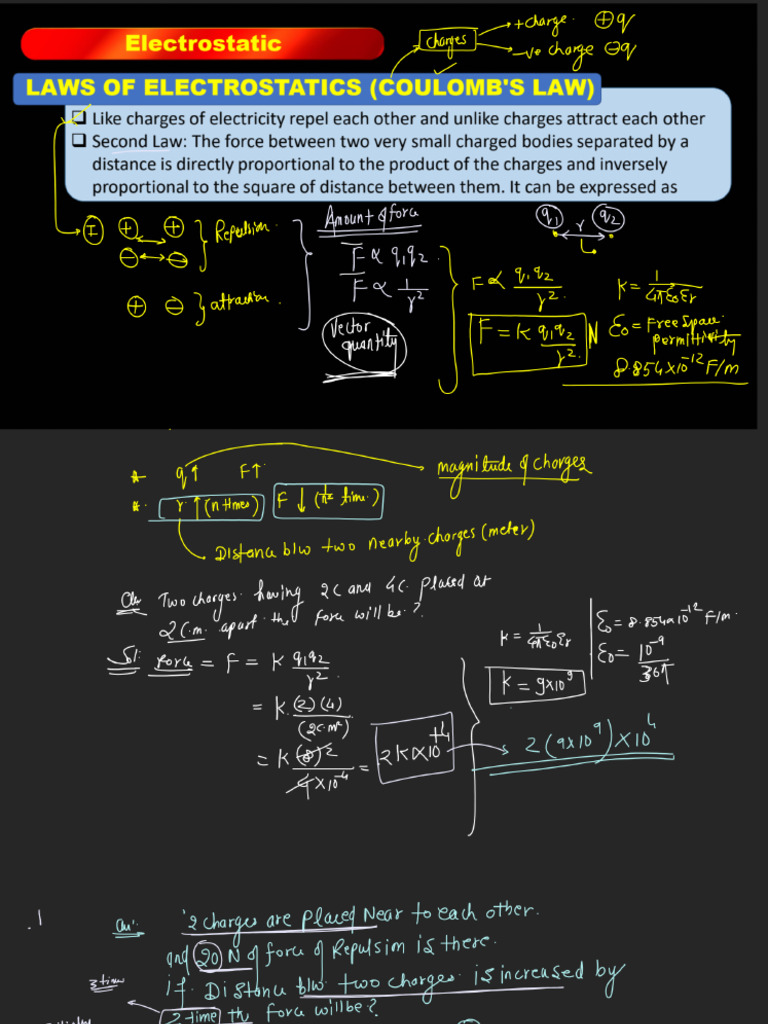 Electrostatic
charges
+charge ⊕q
-ve charge ⊖q
LAWS OF ELECTROSTATICS (COULOMB'S LAW)
Like charges of electricity repel each other and unlike charges attract each other
Second Law: The force between two very small charged bodies separated by a
distance is directly proportional to the product of the charges and inversely
proportional to the square of distance between them. It can be expressed as
⊕ ⊕
⊖ ⊖
Repulsion
⊕ ⊖ } attraction
Amount of force
F ∝ q₁q₂
F ∝ 1/r²
Vector
quantity
q₁ r q₂
F ∝ q₁q₂/r²
F = K q₁q₂/r² N
K = 1/4πε₀εr
ε₀ = Free space
permittivity
8.854×10⁻¹² F/m
* q↑ F↑
magnitude of charges
* r↑ (n times) F↓ (1/n² time)
Distance b/w two nearby charges (meter)
Qu Two charges having 2C and 4C placed at
2C.m. apart the force will be?
Sol: Force = F = K q₁q₂/r²
= K (2)(4)/(2C.m²)
= K (8) 2/4×10⁻⁴ = 2K×10⁺⁴
K = 1/4πε₀εr
K = 9×10⁹
ε₀ = 8.854×10⁻¹² F/m.
ε₀ = 10⁻⁹/36π
2(9×10⁹)×10⁴
Qu: 2 charges are placed Near to each other.
and 20 N of force of Repulsion is there.
if Distance b/w two charges is increased by
3 time
the force will be?